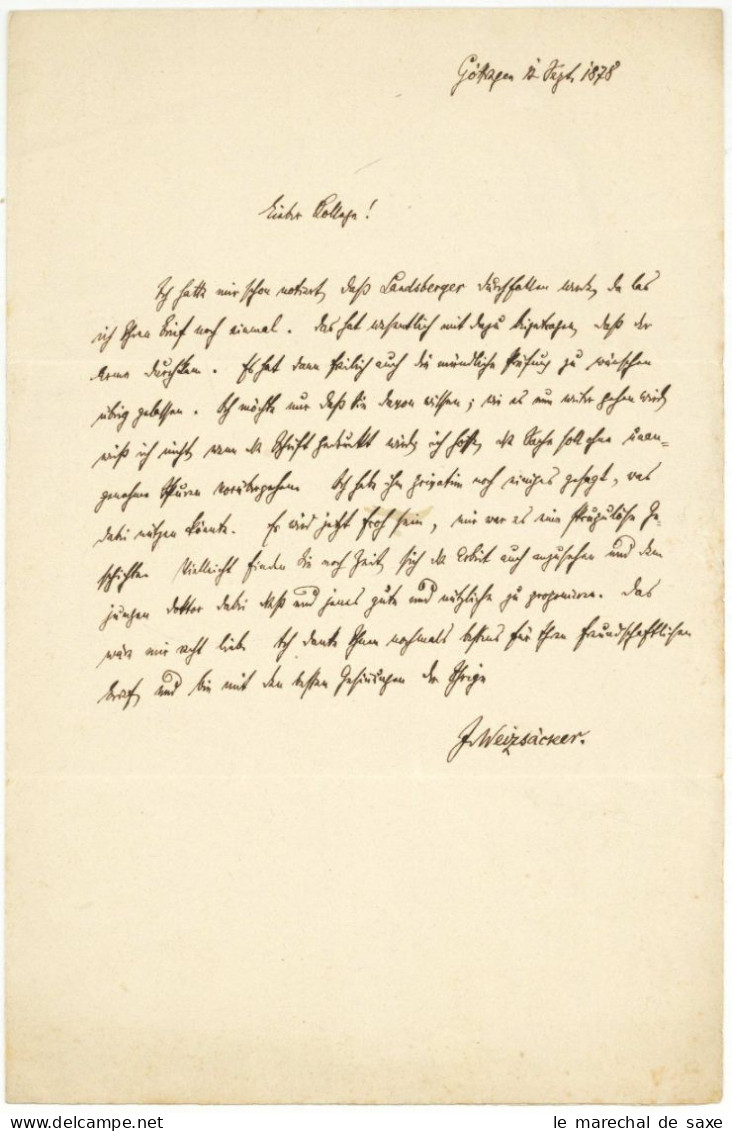 Göttingen 12 Sept. 1878
Lieber College!
Ich hatte mir schon notiert, daß Landsberger durchfallen werde, da las
ich Ihren Brief noch einmal. Das hat wesentlich mit dazu beigetragen, daß der
Arme durchkam. Es hat dann freilich auch die mündliche Prüfung zu wünschen
übrig gelassen. Ich möchte nur daß Sie davon wissen; wie es nun weiter gehen wird,
weiß ich nicht, wann die Schrift gedruckt wird, ich hoffe, die Sache soll ohne unan-
genehme Spuren vorübergehen. Ich habe ihm privatim noch einiges gesagt, was
dabei nützen könnte. Er wird jetzt froh sein, mir war es eine skrupulöse Ge-
schichte. Vielleicht finden Sie noch Zeit, sich die Arbeit auch anzusehen und dem
jungen Doktor dabei dieß und jenes gute und nützliche zu proponieren. Das
wäre mir recht lieb. Ich danke Ihnen nochmals bestens für Ihren freundschaftlichen
Brief, und bin mit den besten Gesinnungen der Ihrige
J. Weizsäcker.
le marechal de saxe